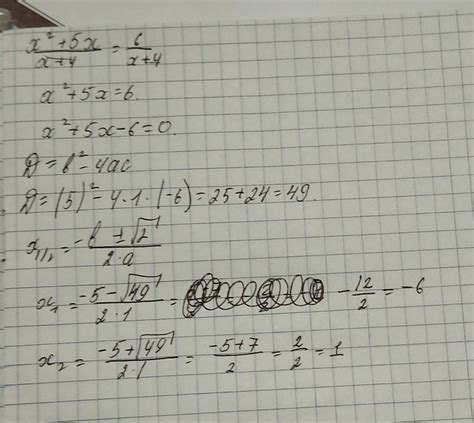 x²+5x/x+4 = 6/x+4
x²+5x=6.
x²+5x-6=0.
D=b²-4ac
D=(5)²-4·1·(-6)=25+24=49.
x₁,₂=-b±√2/2·a
x₁=-5-√49/2·1= -12/2=-6
x₂=-5+√49/2·1=-5+7/2=2/2=1